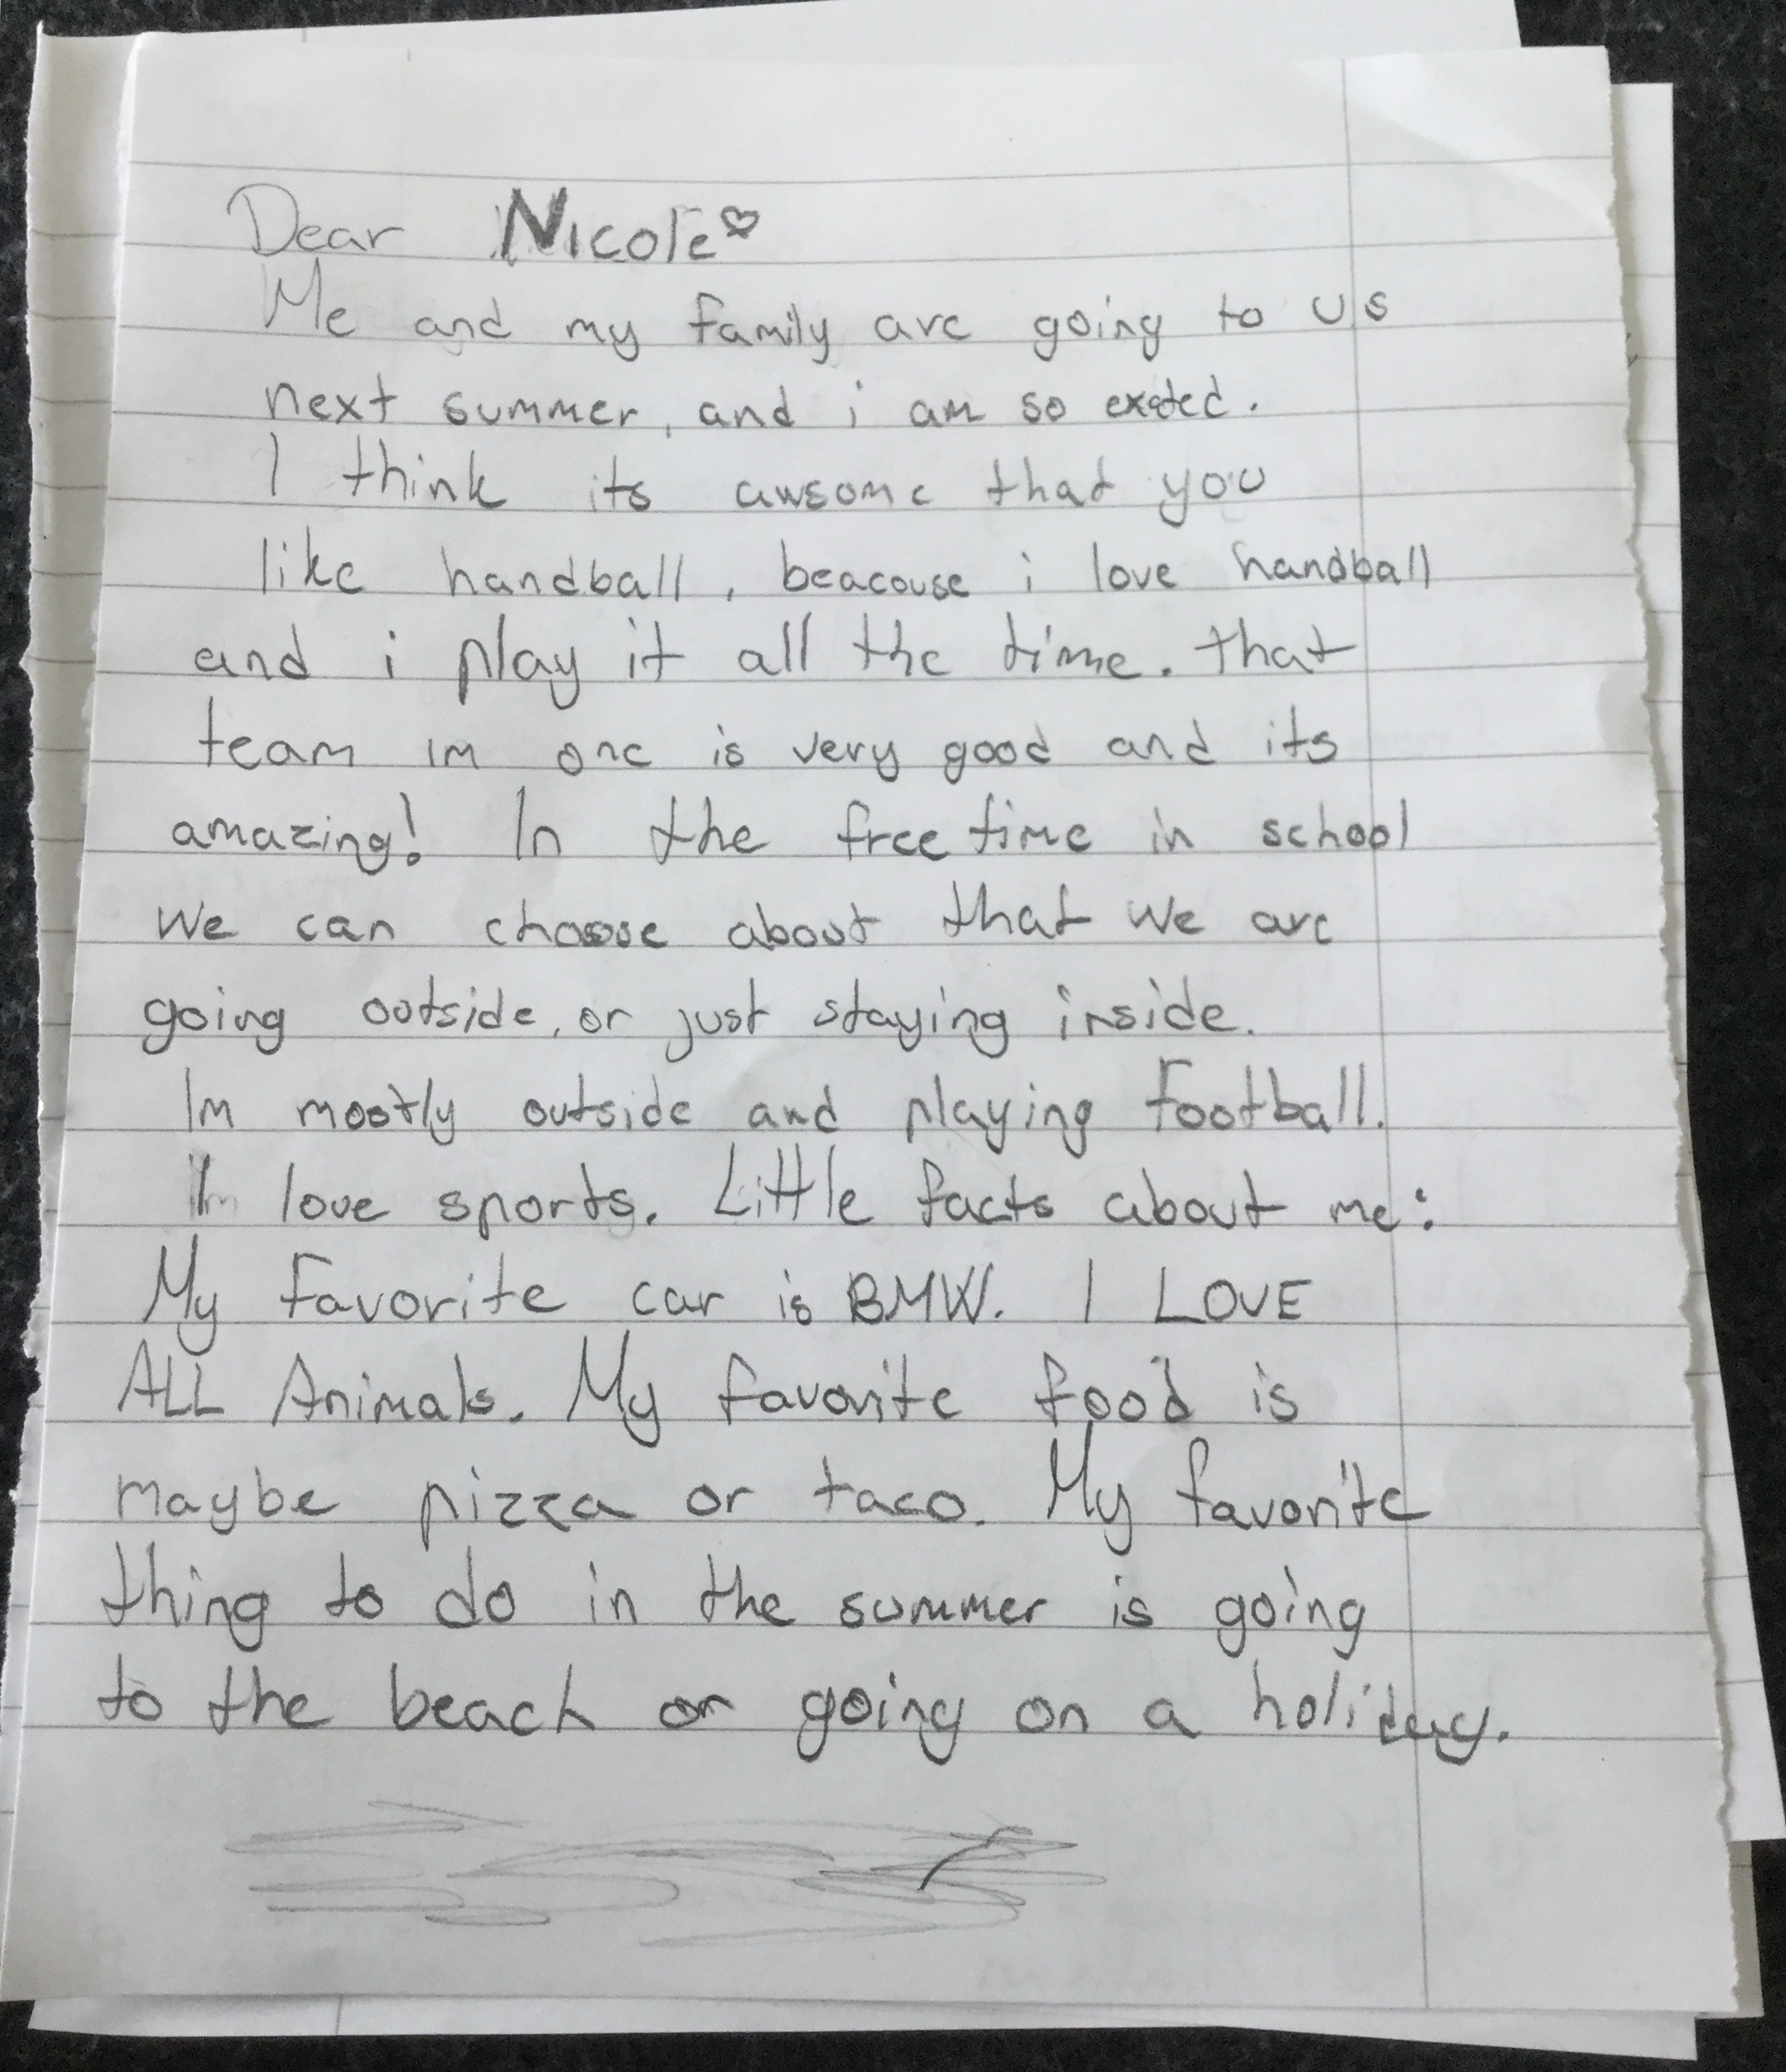 Dear Nicole♡
Me and my family are going to US
next summer, and i am so exated.
I think its awsome that you
like handball, beacouse i love handball
and i play it all the time. that
team im one is very good and its
amazing! In the free time in school
We can choose about that we are
going outside, or just staying inside.
Im mostly outside and playing football.
I love sports. Little facts about me:
My favorite car is BMW. I LOVE
ALL Animals. My favorite food is
maybe pizza or taco. My favorite
thing to do in the summer is going
to the beach or going on a holiday.